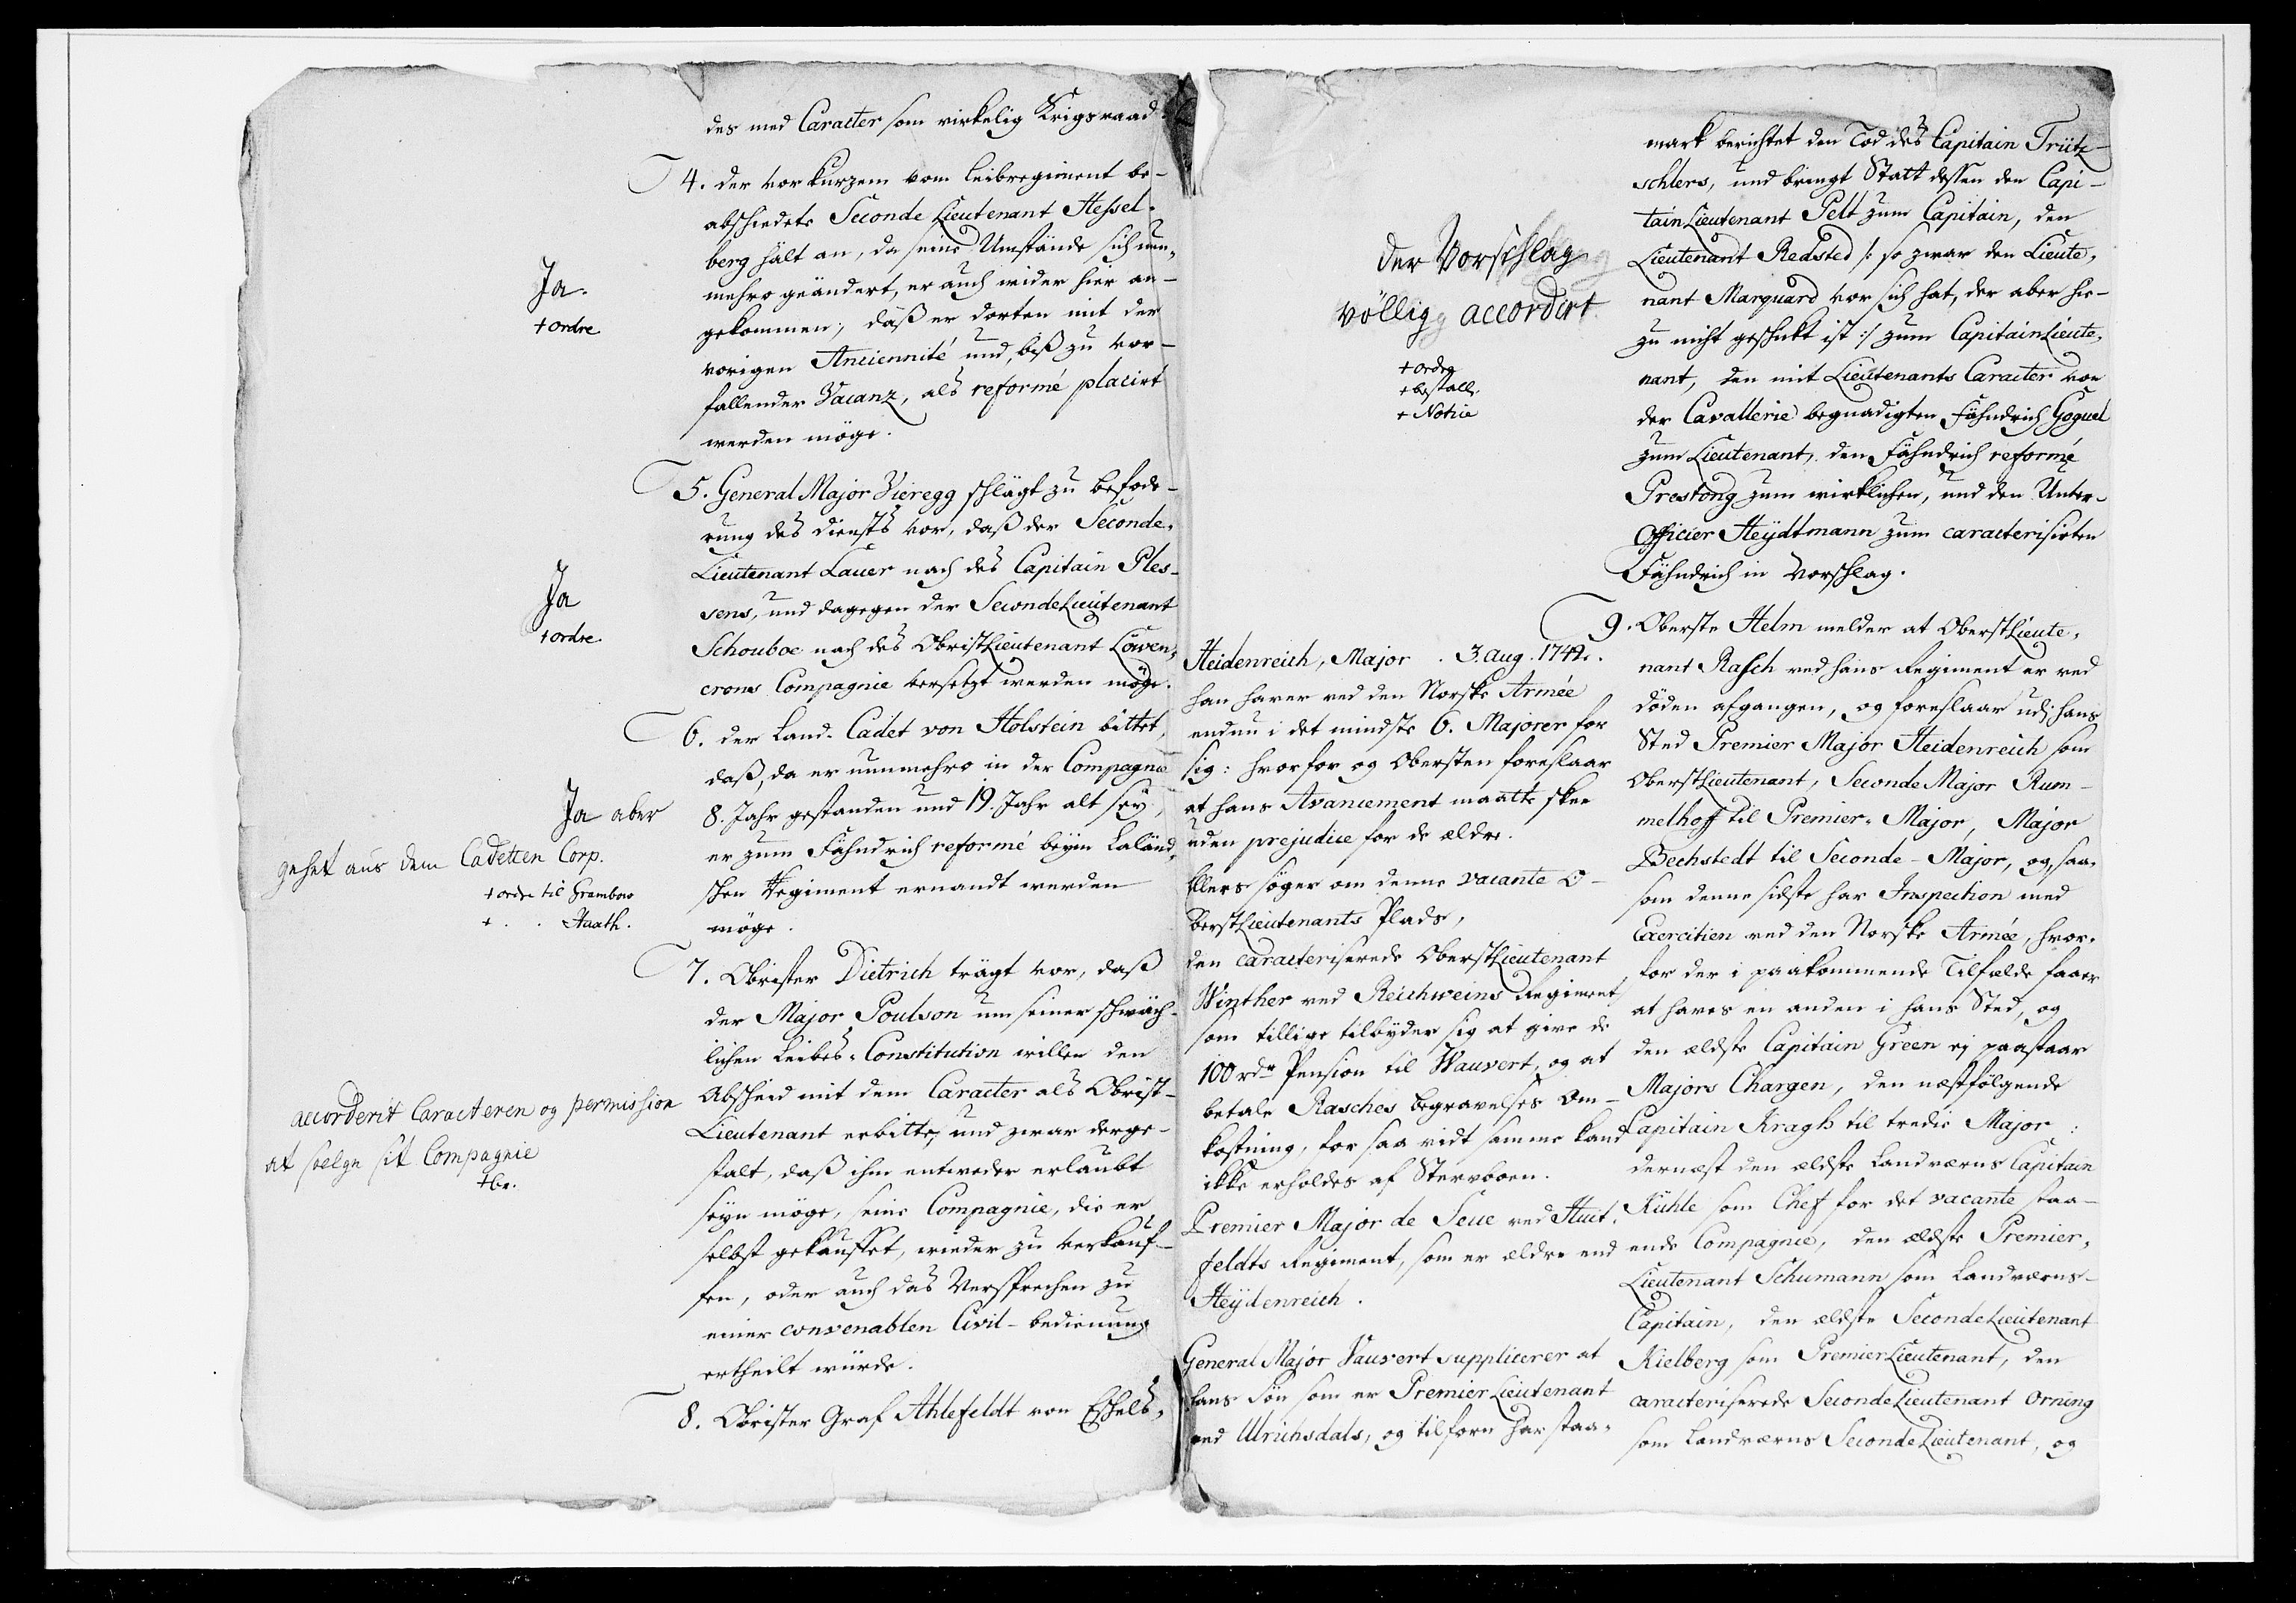 des med Caracter som virkelig Krigsraad.
4. der vor kurzem vom Leibregiment be-
abschiedete Seconde Lieutenant Hessel-
berg hält an, da seine Umstände sich nun-
mehro geändert, er auch wider hier an-
gekommen, daß er dorten mit der
vorigen Anciennité und, biß zu vor-
fallender Vacanz, als reformé placirt
werden möge.
Ja.
+ ordre
5. General Major Vieregg schlägt zu Befode-
rung des Diensts vor, daß der Seconde-
Lieutenant Lauer nach des Capitain Ples-
sens, und dagegen der SecondeLieutenant
Schouboe nach des ObristLieutenant Löwen-
crons Compagnie versetzt werden möge.
Ja
+ ordre.
6. der Land-Cadet von Holstein bittet,
daß, da er nunmehro in der Compagnie
8. Jahr gestanden und 19. Jahr alt sey,
er zum Fähndrich reformé beym Laländ-
schen Regiment ernandt werden
möge.
Ja aber
gehet aus dem Cadetten Corp.
+ ordre til Grambow
+ . . Staath.
7. Obrister Dietrich trägt vor, daß
der Major Poulson um seiner schwäch-
lichen Leibes-Constitution willen den
Abscheid mit dem Caracter als Obrist-
Lieutenant erbitte, und zwar derge-
stalt, daß ihm entweder erlaubt
seyn möge, seine Compagnie, die er
selbst gekauffet, wieder zu verkauf-
fen, oder auch das Versprechen zu
einer convenablen Civil-bedienung
ertheilt würde.
accorderit Caracteren og permission
at selge sit Compagnie
+ br.
8. Obrister Graf Ahlefeldt von Eschels-
mark berichtet den Tod des Capitain Trütz-
schlers, und bringt Statt dessen den Capi-
tainLieutenant Pelt zum Capitain, den
Lieutenant Redsted /: so zwar den Lieute-
nant Marquard vor sich hat, der aber hie-
zu nicht geschikt ist :/ zum CapitainLieute-
nant, den mit Lieutenants Caracter von
der Cavallerie begnadigten Fähndrich Goguel
zum Lieutenant, den Fähndrich reformé
Prestong zum wirklichen, und den Unter-
Officier Heydtmann zum caracterisirten
Fähndrich in Vorschlag.
der Vorschlag
völlig accordirt
+ ordre
+ bestall.
+ Notice
9. Oberste Helm melder at OberstLieute-
nant Rasch ved hans Regiment er ved
döden afgangen, og foreslaar udi hans
Sted Premier Major Heidenreich som
OberstLieutenant, Seconde Major Rum-
melhoff til Premier-Major, Major
Bechstedt til Seconde-Major, og, saa-
som denne sidste har Inspection med
Exercitien ved den Norske Armée, hvor-
for der i paakommende Tilfælde faaer
at haves en anden i hans Sted, og
den ældste Capitain Green ej paastaar
Majors Chargen, den næstfölgende
Capitain Kragh til tredie Major:
dernæst den ældste Landværns Capitain
Kühle som Chef for det vacante staa-
ende Compagnie, den ældste Premier-
Lieutenant Schumann som Landværns-
Capitain, den ældste SecondeLieutenant
Kielberg som PremierLieutenant, den
caracteriserede SecondeLieutenant Orning
som Landværns SecondeLieutenant, og
Heidenreich, Major . 3. Aug. 1742.
han haver ved den Norske Armée
endnu i det mindste 6. Majorer for
sig: hvorfor og Obersten foreslaar
at hans Avancement maatte skee
uden prejudice for de ældre.
Ellers söger om denne vacante O-
berstLieutenants Plads,
den caracteriserede OberstLieutenant
Winther ved Reichweins Regiment,
som tillige tilbyder sig at give de
100 rdr Pension til Vauvert, og at
betale Rasches begravelses Om-
kostning, for saa vidt samme kand
ikke erholdes af Stervboen.
Premier Major de Seue ved Huit-
feldts Regiment, som er ældre end
Heydenreich.
General Major Vauvert supplicerer at
hans Sön som er PremierLieutenant
ved Ulrichsdals, og tilforn har staa-